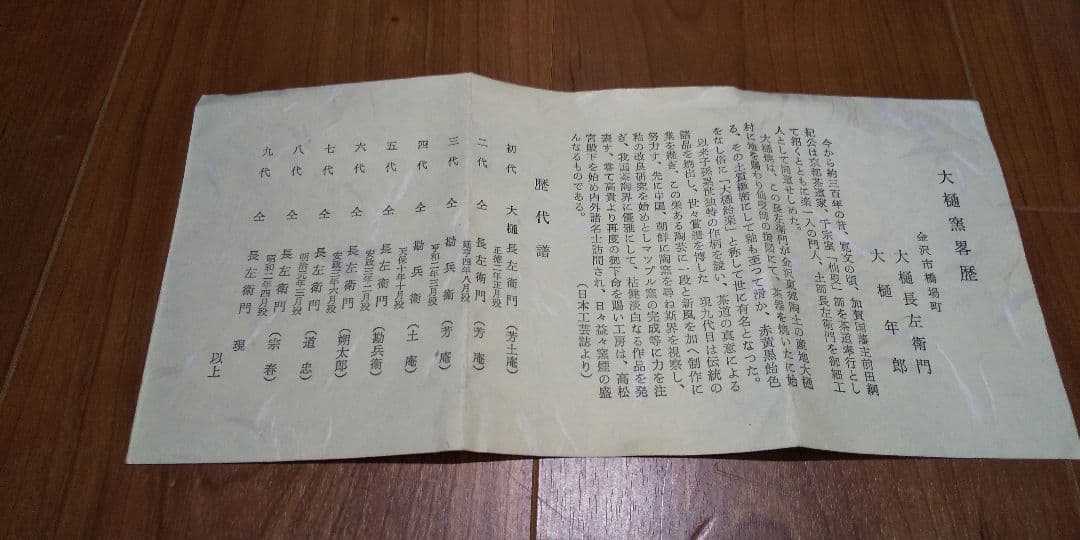 大樋窯畧歴
金沢市橋場町
大樋長左衛門
大樋年郎
今から約三百年の昔、寛文の頃、加賀国藩主前田綱
紀公は京都茶道家、千宗室「仙叟」師を茶道奉行とし
て招くとともに楽一入の門人、土師長左衛門を御細工
人として同道せしめた。
大樋焼は、この長左衛門が金沢東郊陶土の産地大樋
村に地を賜わり仙叟師の指図にて、茶器を焼いたに始
る、その土質緻密にして釉も至つて滑か、赤黄黒飴色
をなし俗に「大樋飴楽」と称して世に有名となつた。
以来子孫累世独特の作柄を競い、茶道の真意による
諸品を焼出し、世々賞讃を博した 現九代目は伝統の
業を継ぎ、この栄ある陶芸に一段と新風を加へ制作に
努力す、先に中国、朝鮮に陶窯を尋ね斯界を視察し、
私の改良研究を始めとしマツフル窯の完成等に力を注
ぎ、我国茶陶界に優雅にして、枯健淡白なる作品を発
表す、曩て高貴より再度の御下命を賜い工房は、高松
宮殿下を始め内外諸名士訪問され、日々益々窯煙の盛
んなるものである。
(日本工芸誌より)
歴代譜
初代 大樋長左衛門 (芳土庵)
正徳二年正月歿
二代 仝 長左衛門 (芳庵)
延享四年八月歿
三代 仝 勘兵衛 (芳庵)
享和二年三月歿
四代 仝 勘兵衛 (土庵)
天保十年十月歿
五代 仝 長左衛門 (勘兵衛)
安政三年二月歿
六代 仝 長左衛門 (朔太郎)
安政三年六月歿
七代 仝 長左衛門 (道忠)
明治元年三月歿
八代 仝 長左衛門 (宗春)
昭和二年四月歿
九代 仝 長左衛門 現
以上